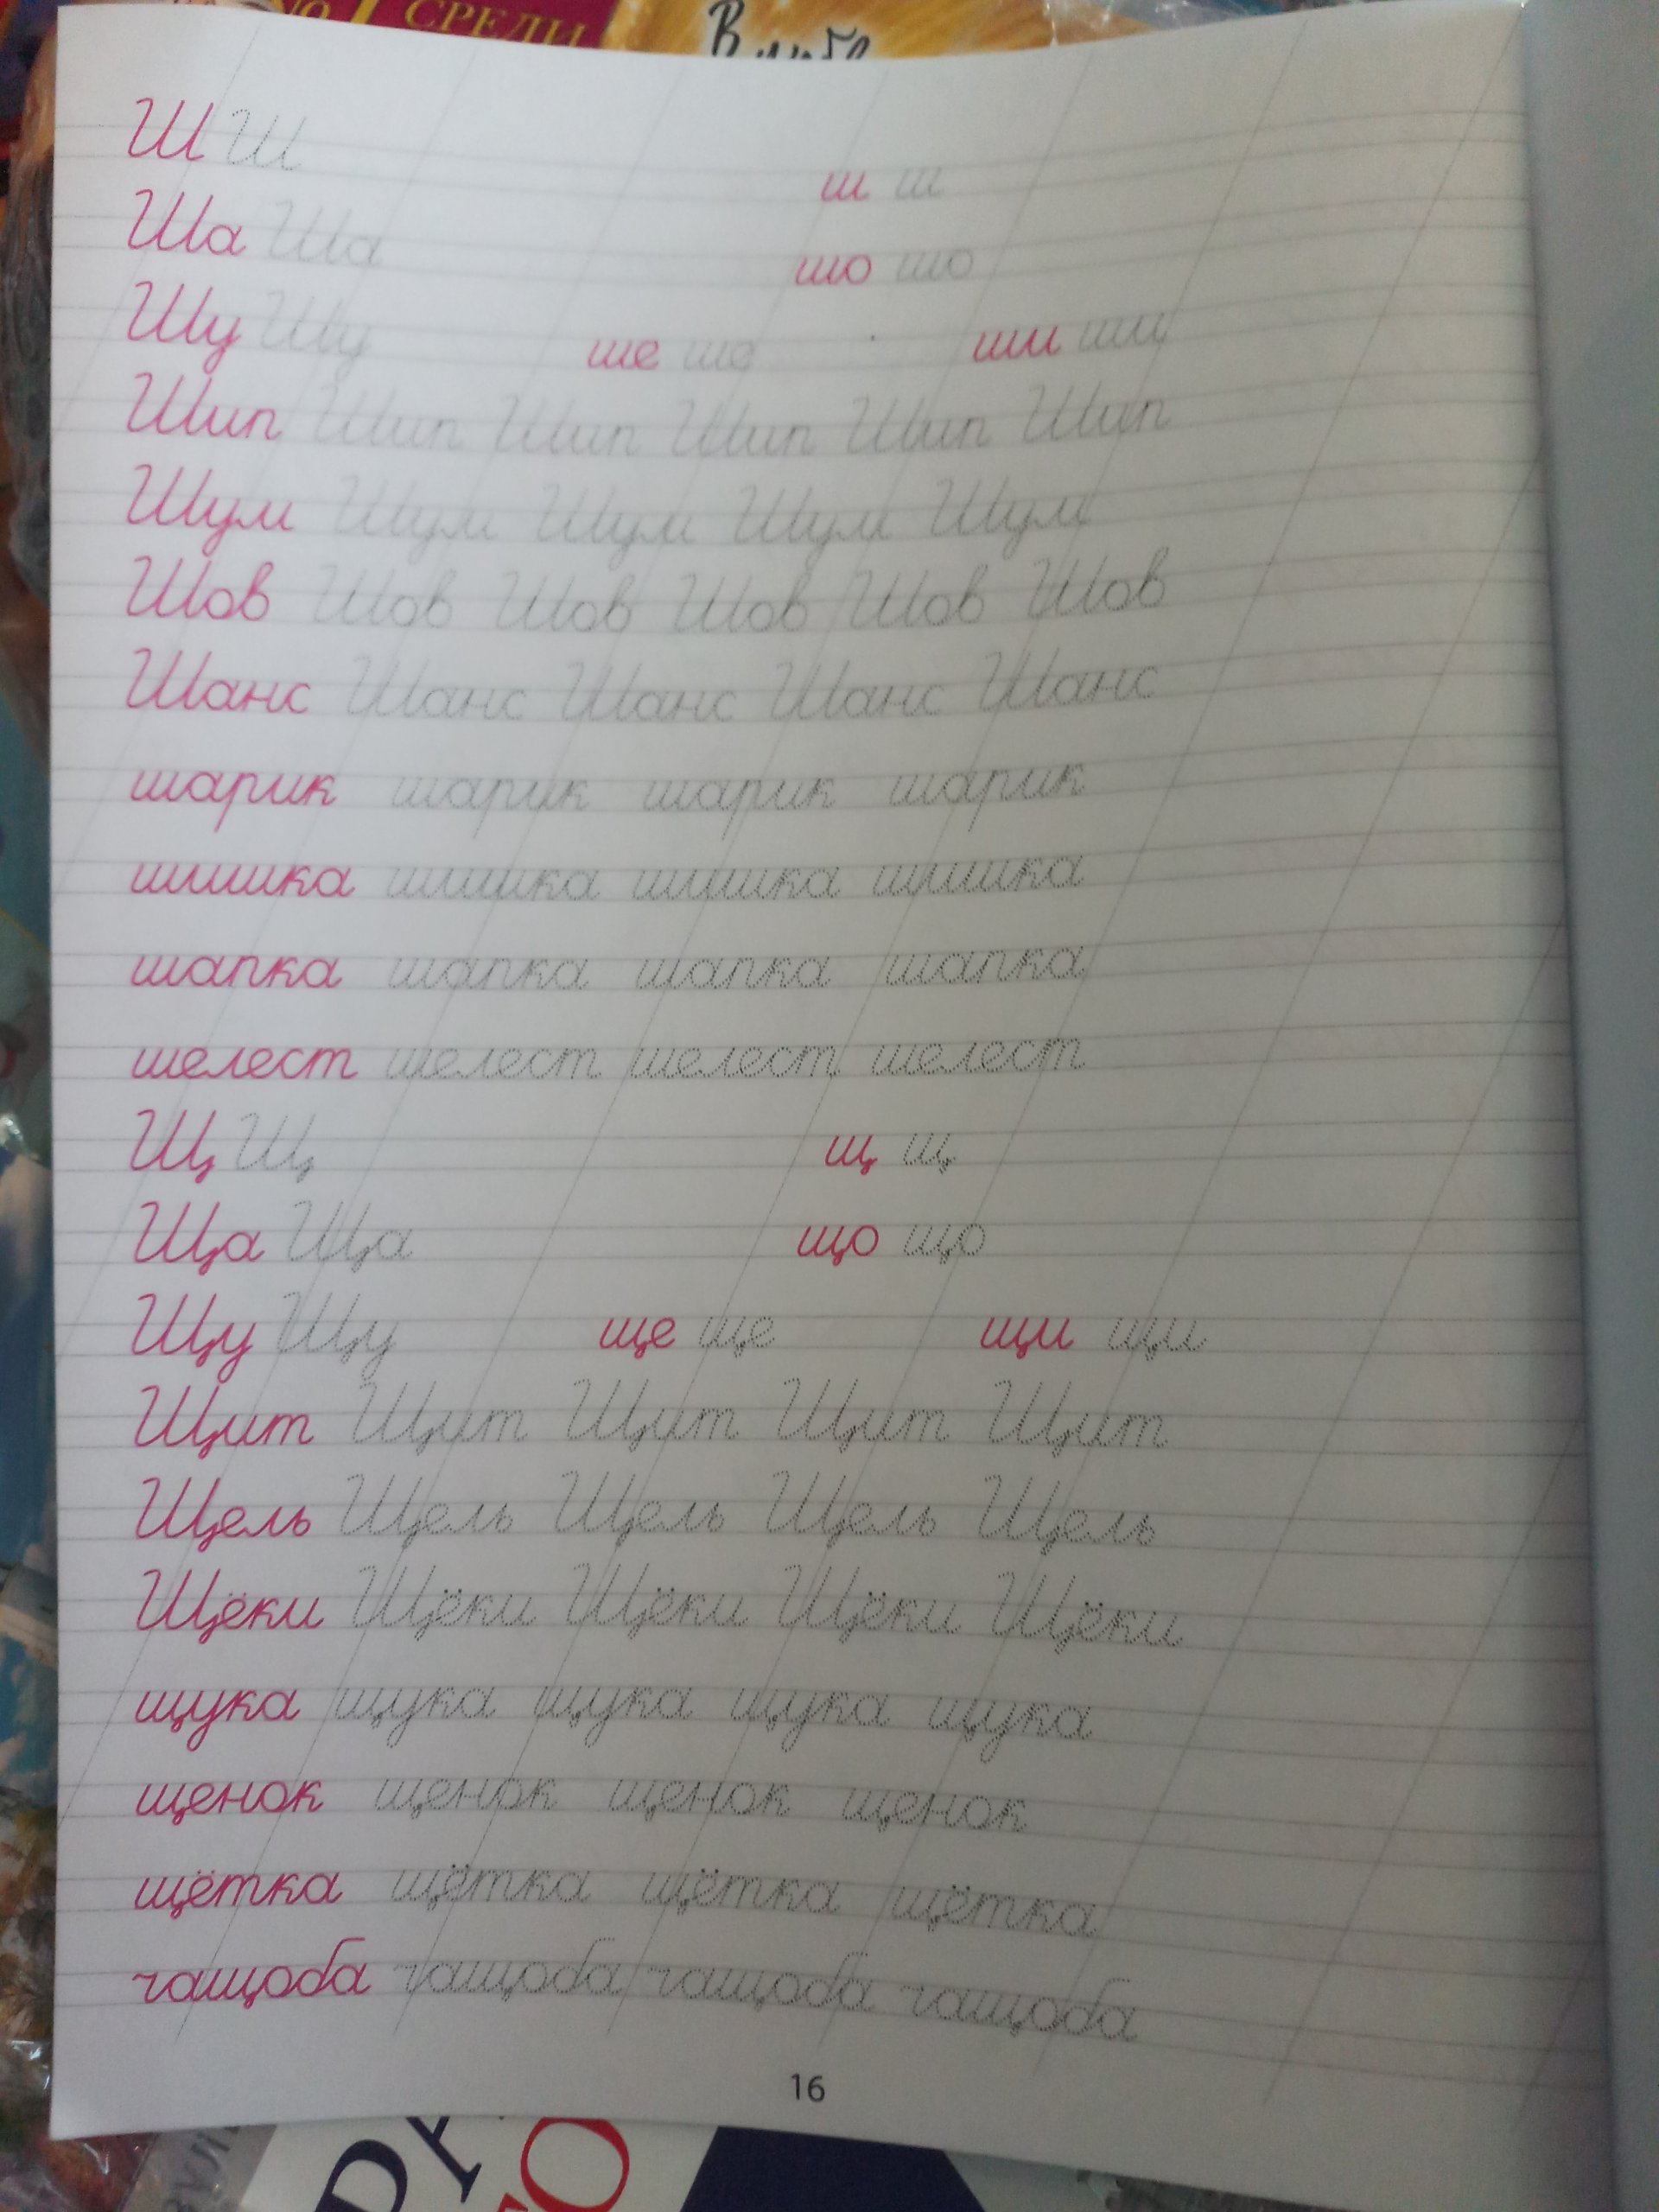 №1 СРЕДИ
В
Ш Ш ш ш
Ша Ша шо шо
Шу Шу ше ше ши ши
Шип Шип Шип Шип Шип Шип
Шум Шум Шум Шум Шум
Шов Шов Шов Шов Шов Шов
Шанс Шанс Шанс Шанс Шанс
шарик шарик шарик шарик
шишка шишка шишка шишка
шапка шапка шапка шапка
шелест шелест шелест шелест
Щ Щ щ щ
Ща Ща що що
Щу Щу ще ще щи щи
Щит Щит Щит Щит Щит
Щель Щель Щель Щель Щель
Щёки Щёки Щёки Щёки Щёки
щука щука щука щука щука
щенок щенок щенок щенок
щётка щётка щётка щётка
чащоба чащоба чащоба чащоба
16